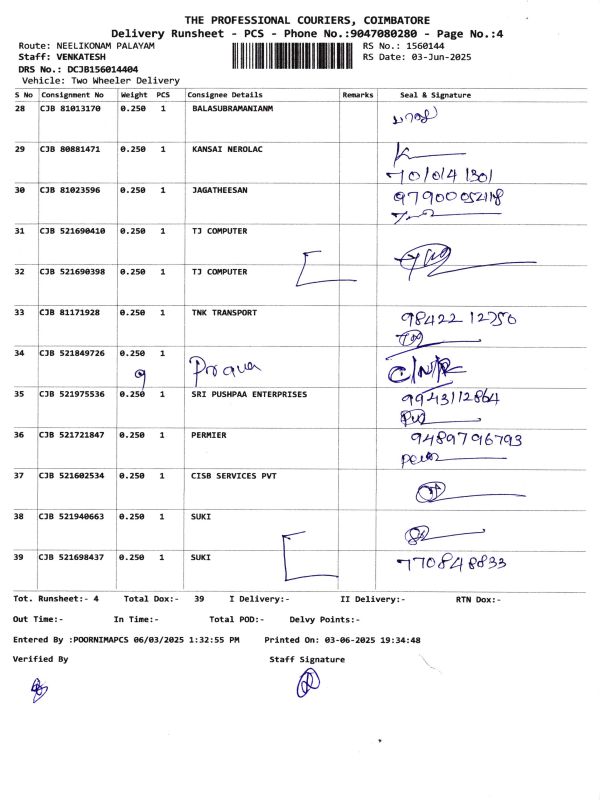 THE PROFESSIONAL COURIERS, COIMBATORE
Delivery Runsheet - PCS - Phone No.:9047080280 - Page No.:4
Route: NEELIKONAM PALAYAM RS No.: 1560144
Staff: VENKATESH RS Date: 03-Jun-2025
DRS No.: DCJB156014404
Vehicle: Two Wheeler Delivery
S No Consignment No Weight PCS Consignee Details Remarks Seal & Signature
28 CJB 81013170 0.250 1 BALASUBRAMANIANM
29 CJB 80881471 0.250 1 KANSAI NEROLAC
30 CJB 81023596 0.250 1 JAGATHEESAN
31 CJB 521690410 0.250 1 TJ COMPUTER
32 CJB 521690398 0.250 1 TJ COMPUTER
33 CJB 81171928 0.250 1 TNK TRANSPORT
98422 12750
34 CJB 521849726 0.250 1
35 CJB 521975536 0.250 1 SRI PUSHPAA ENTERPRISES 9943112864
36 CJB 521721847 0.250 1 PERMIER 9489796793
37 CJB 521602534 0.250 1 CISB SERVICES PVT
38 CJB 521940663 0.250 1 SUKI
39 CJB 521698437 0.250 1 SUKI 770848833
Tot. Runsheet:- 4 Total Dox:- 39 I Delivery:- II Delivery:- RTN Dox:-
Out Time:- In Time:- Total POD:- Delvy Points:-
Entered By :POORNIMAPCS 06/03/2025 1:32:55 PM Printed On: 03-06-2025 19:34:48
Verified By Staff Signature